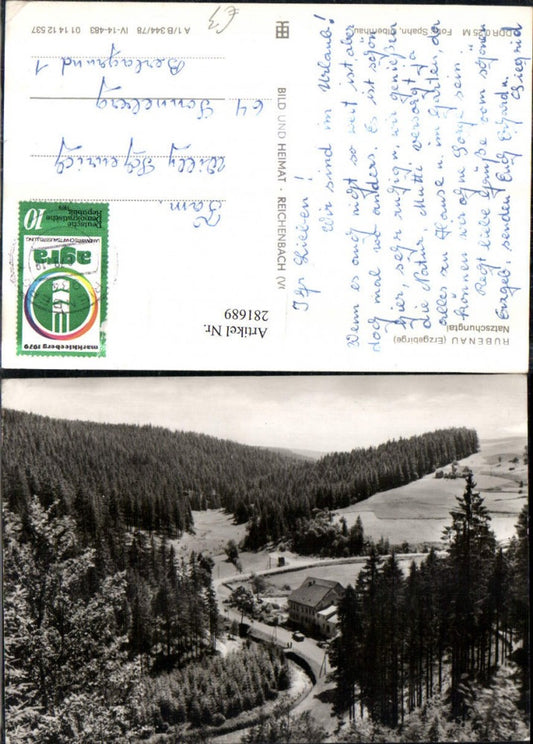 RÜBENAU (Erzgebirge)
Natzschungtal
Ihr Lieben!
Wir sind im Urlaub!
Wenn es auch nicht so weit ist, aber
doch mal was anders. Es ist schön
hier, sehr ruhig u. wir genießen
die Natur. Mutti versorgt ja
alles zu Hause u. im Garten, da
können wir ohne Sorge sein.
Recht liebe Grüße vom schönen
Erzgeb. senden Euch
Siegried
BILD UND HEIMAT · REICHENBACH (V)
DDR 0,25 M Foto: Spahn, Olbernhau
A 1/B 344/78 IV-14-483 01 14 12 537
Fam.
Willy
64 Sonneberg
1
10
Deutsche
Demokratische
Republik
1979
LANDWIRTSCHAFTSAUSSTELLUNG
agra
markkleeberg 1979
Artikel Nr.
281689